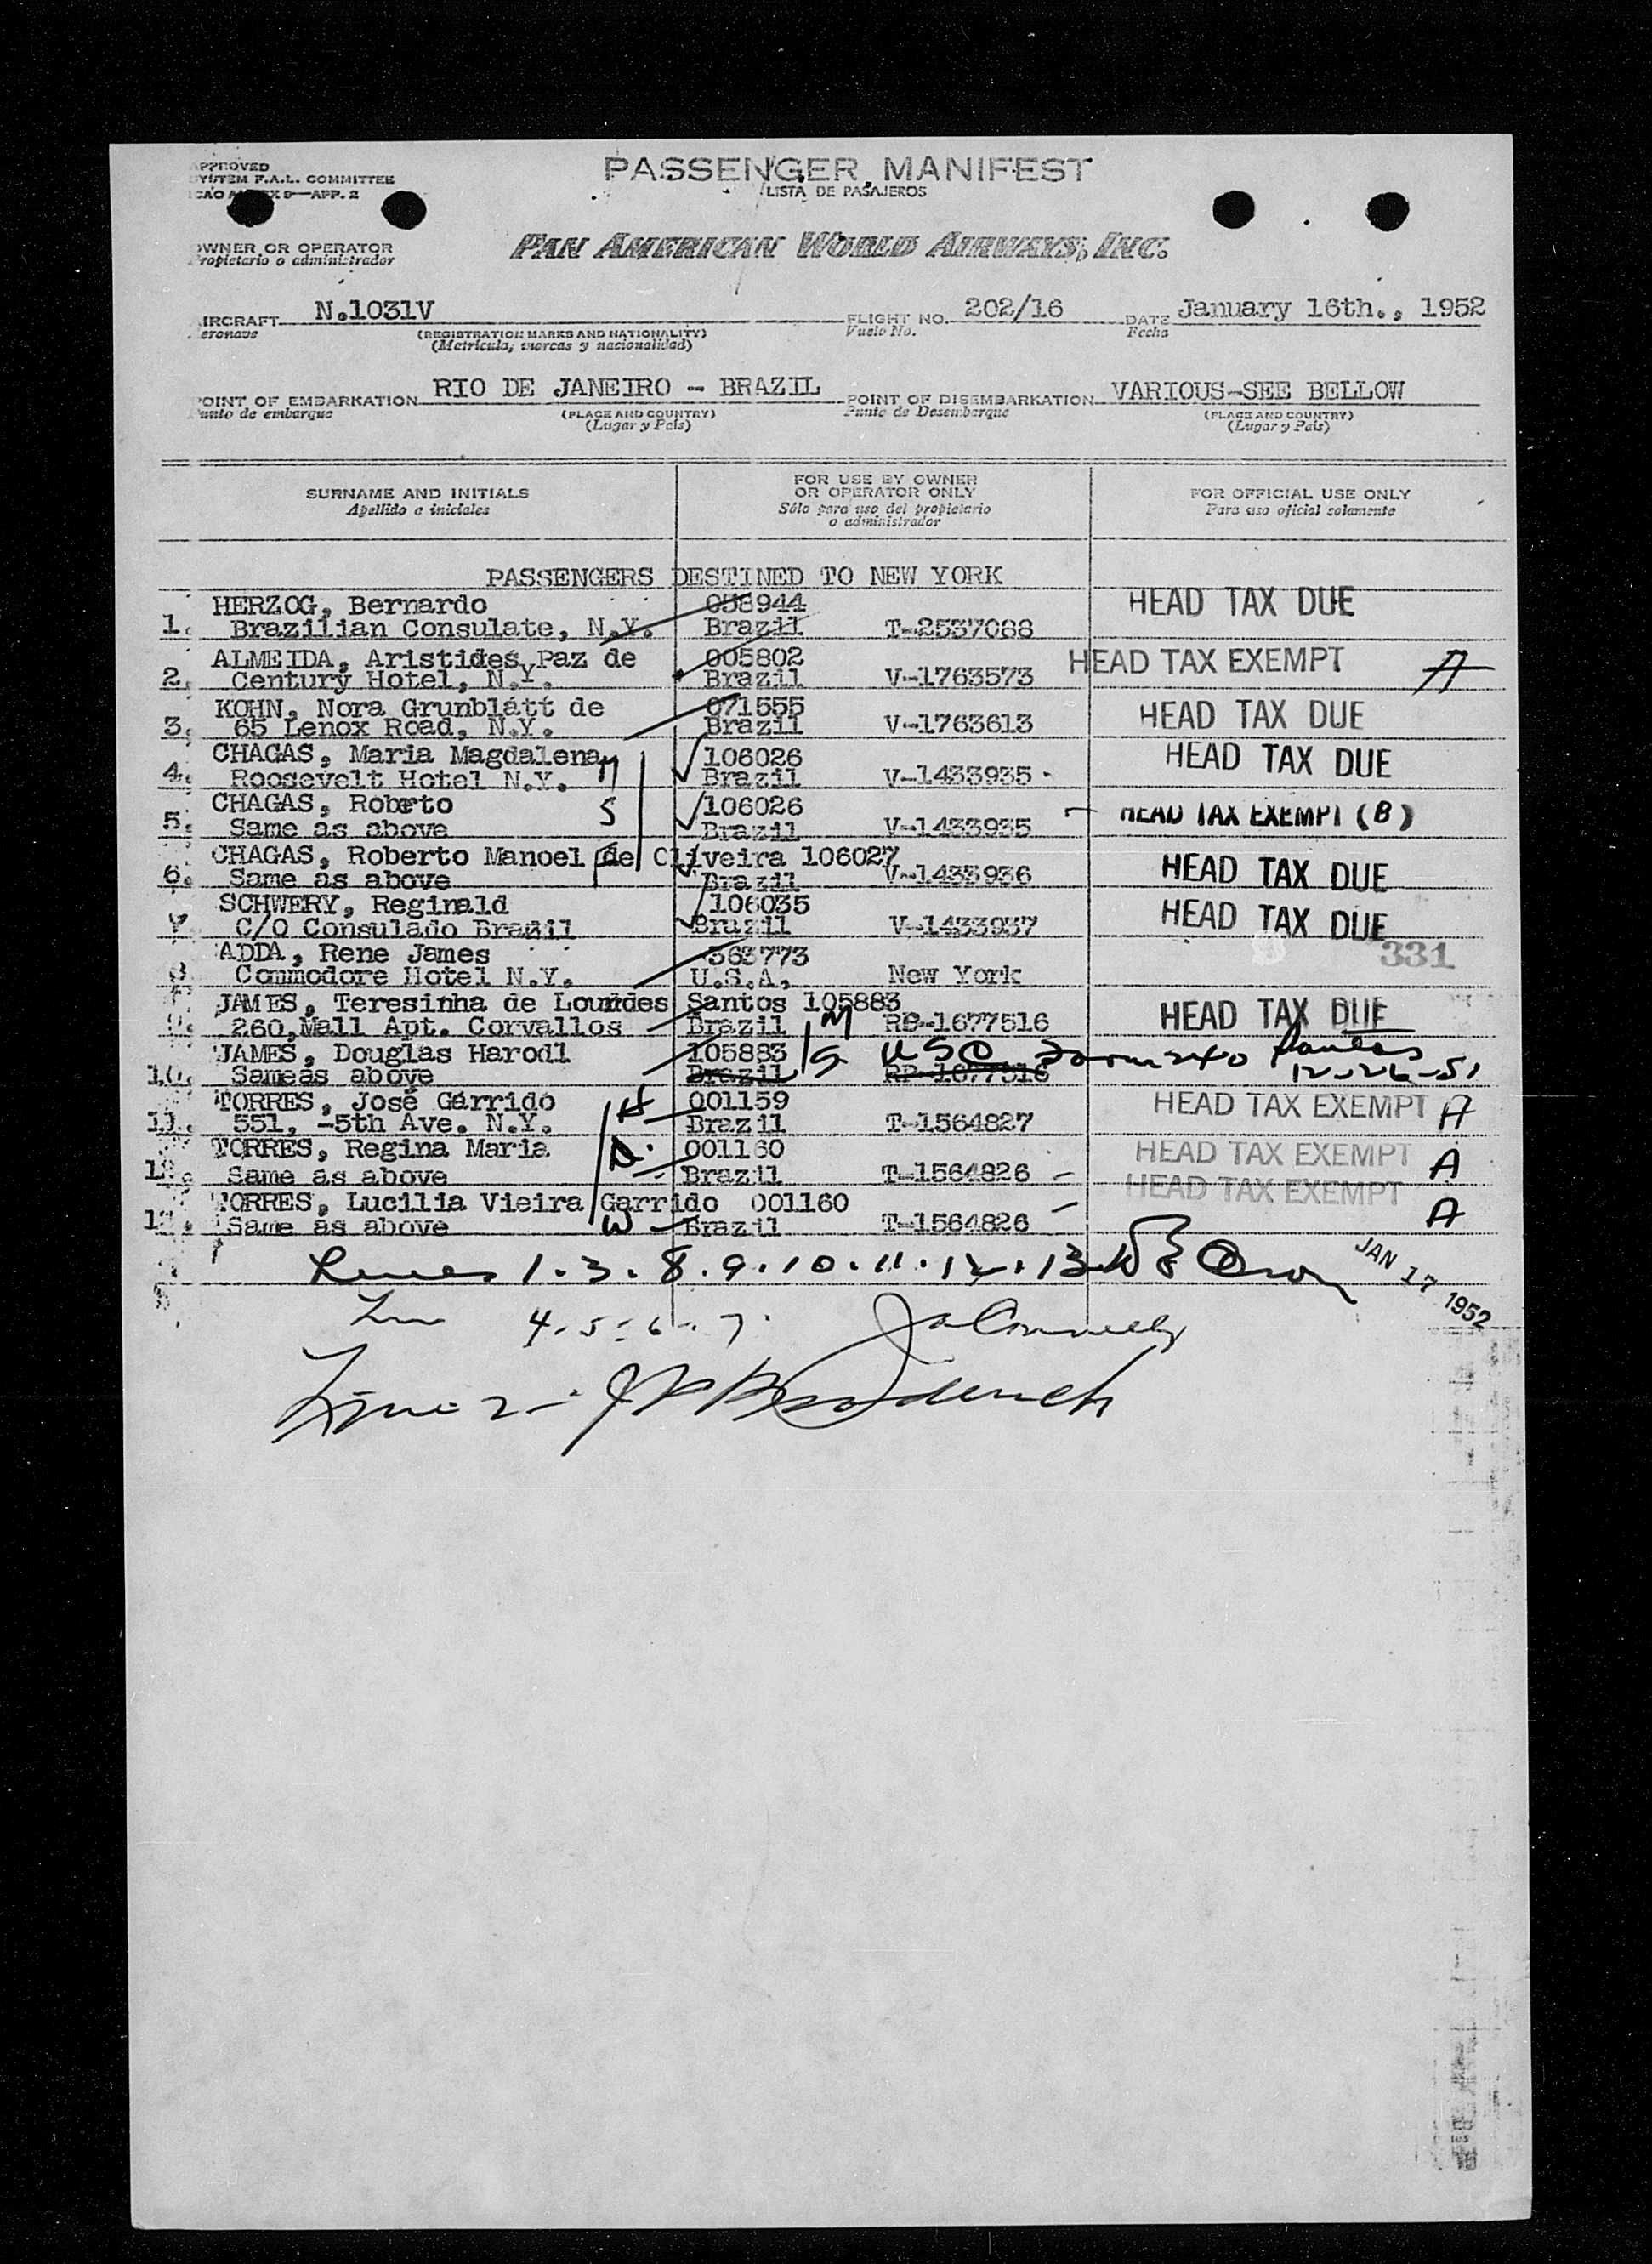 PASSENGER MANIFEST
LISTA DE PASAJEROS
APPROVED
SYSTEM F.A.L. COMMITTEE
ICAO ANNEX 9—APP. 2
OWNER OR OPERATOR
Propietario o administrador
PAN AMERICAN WORLD AIRWAYS, INC.
AIRCRAFT N.1031V FLIGHT NO. 202/16 DATE January 16th., 1952
Aeronave (REGISTRATION MARKS AND NATIONALITY) Vuelo No. Fecha
(Matrícula, marcas y nacionalidad)
POINT OF EMBARKATION RIO DE JANEIRO - BRAZIL POINT OF DISEMBARKATION VARIOUS-SEE BELLOW
Punto de embarque (PLACE AND COUNTRY) Punto de Desembarque (PLACE AND COUNTRY)
(Lugar y País) (Lugar y País)
SURNAME AND INITIALS
Apellido e iniciales
FOR USE BY OWNER
OR OPERATOR ONLY
Sólo para uso del propietario
o administrador
FOR OFFICIAL USE ONLY
Para uso oficial solamente
PASSENGERS DESTINED TO NEW YORK
HERZOG, Bernardo 058944 HEAD TAX DUE
1. Brazilian Consulate, N.Y. Brazil T-2537088
ALMEIDA, Aristides Paz de 005802 HEAD TAX EXEMPT A
2. Century Hotel, N.Y. Brazil V-1763573
KOHN, Nora Grunblatt de 071555 HEAD TAX DUE
3. 65 Lenox Road, N.Y. Brazil V-1763613
CHAGAS, Maria Magdalena M 106026 HEAD TAX DUE
4. Roosevelt Hotel N.Y. Brazil V-1433935
CHAGAS, Roberto S 106026 HEAD TAX EXEMPT (B)
5. Same as above Brazil V-1433935
CHAGAS, Roberto Manoel de Oliveira 106027 HEAD TAX DUE
6. Same as above F Brazil V-1433936
SCHWERY, Reginald 106035 HEAD TAX DUE
7. C/O Consulado Brazil Brazil V-1433937
331
ADDA, Rene James 363773
8. Commodore Hotel N.Y. U.S.A. New York
JAMES, Teresinha de Lourdes Santos 105883 HEAD TAX DUE
9. 260,Mall Apt. Corvallos Brazil M RB-1677516
JAMES, Douglas Harodl 105883 S USC Form 240 Paulo
10. Sameas above Brazil RP-1677516 12-26-51
TORRES, José Garrido H 001159 HEAD TAX EXEMPT A
11. 551, -5th Ave. N.Y. Brazil T-1564827
TORRES, Regina Maria D. 001160 HEAD TAX EXEMPT A
12. Same as above Brazil T-1564826
TORRES, Lucilia Vieira Garrido 001160 HEAD TAX EXEMPT A
13. Same as above W Brazil T-1564826
Lines 1.3.8.9.10.11.12.13
JAN 17 1952
4-5-6-7
Line 2- J P Broderick